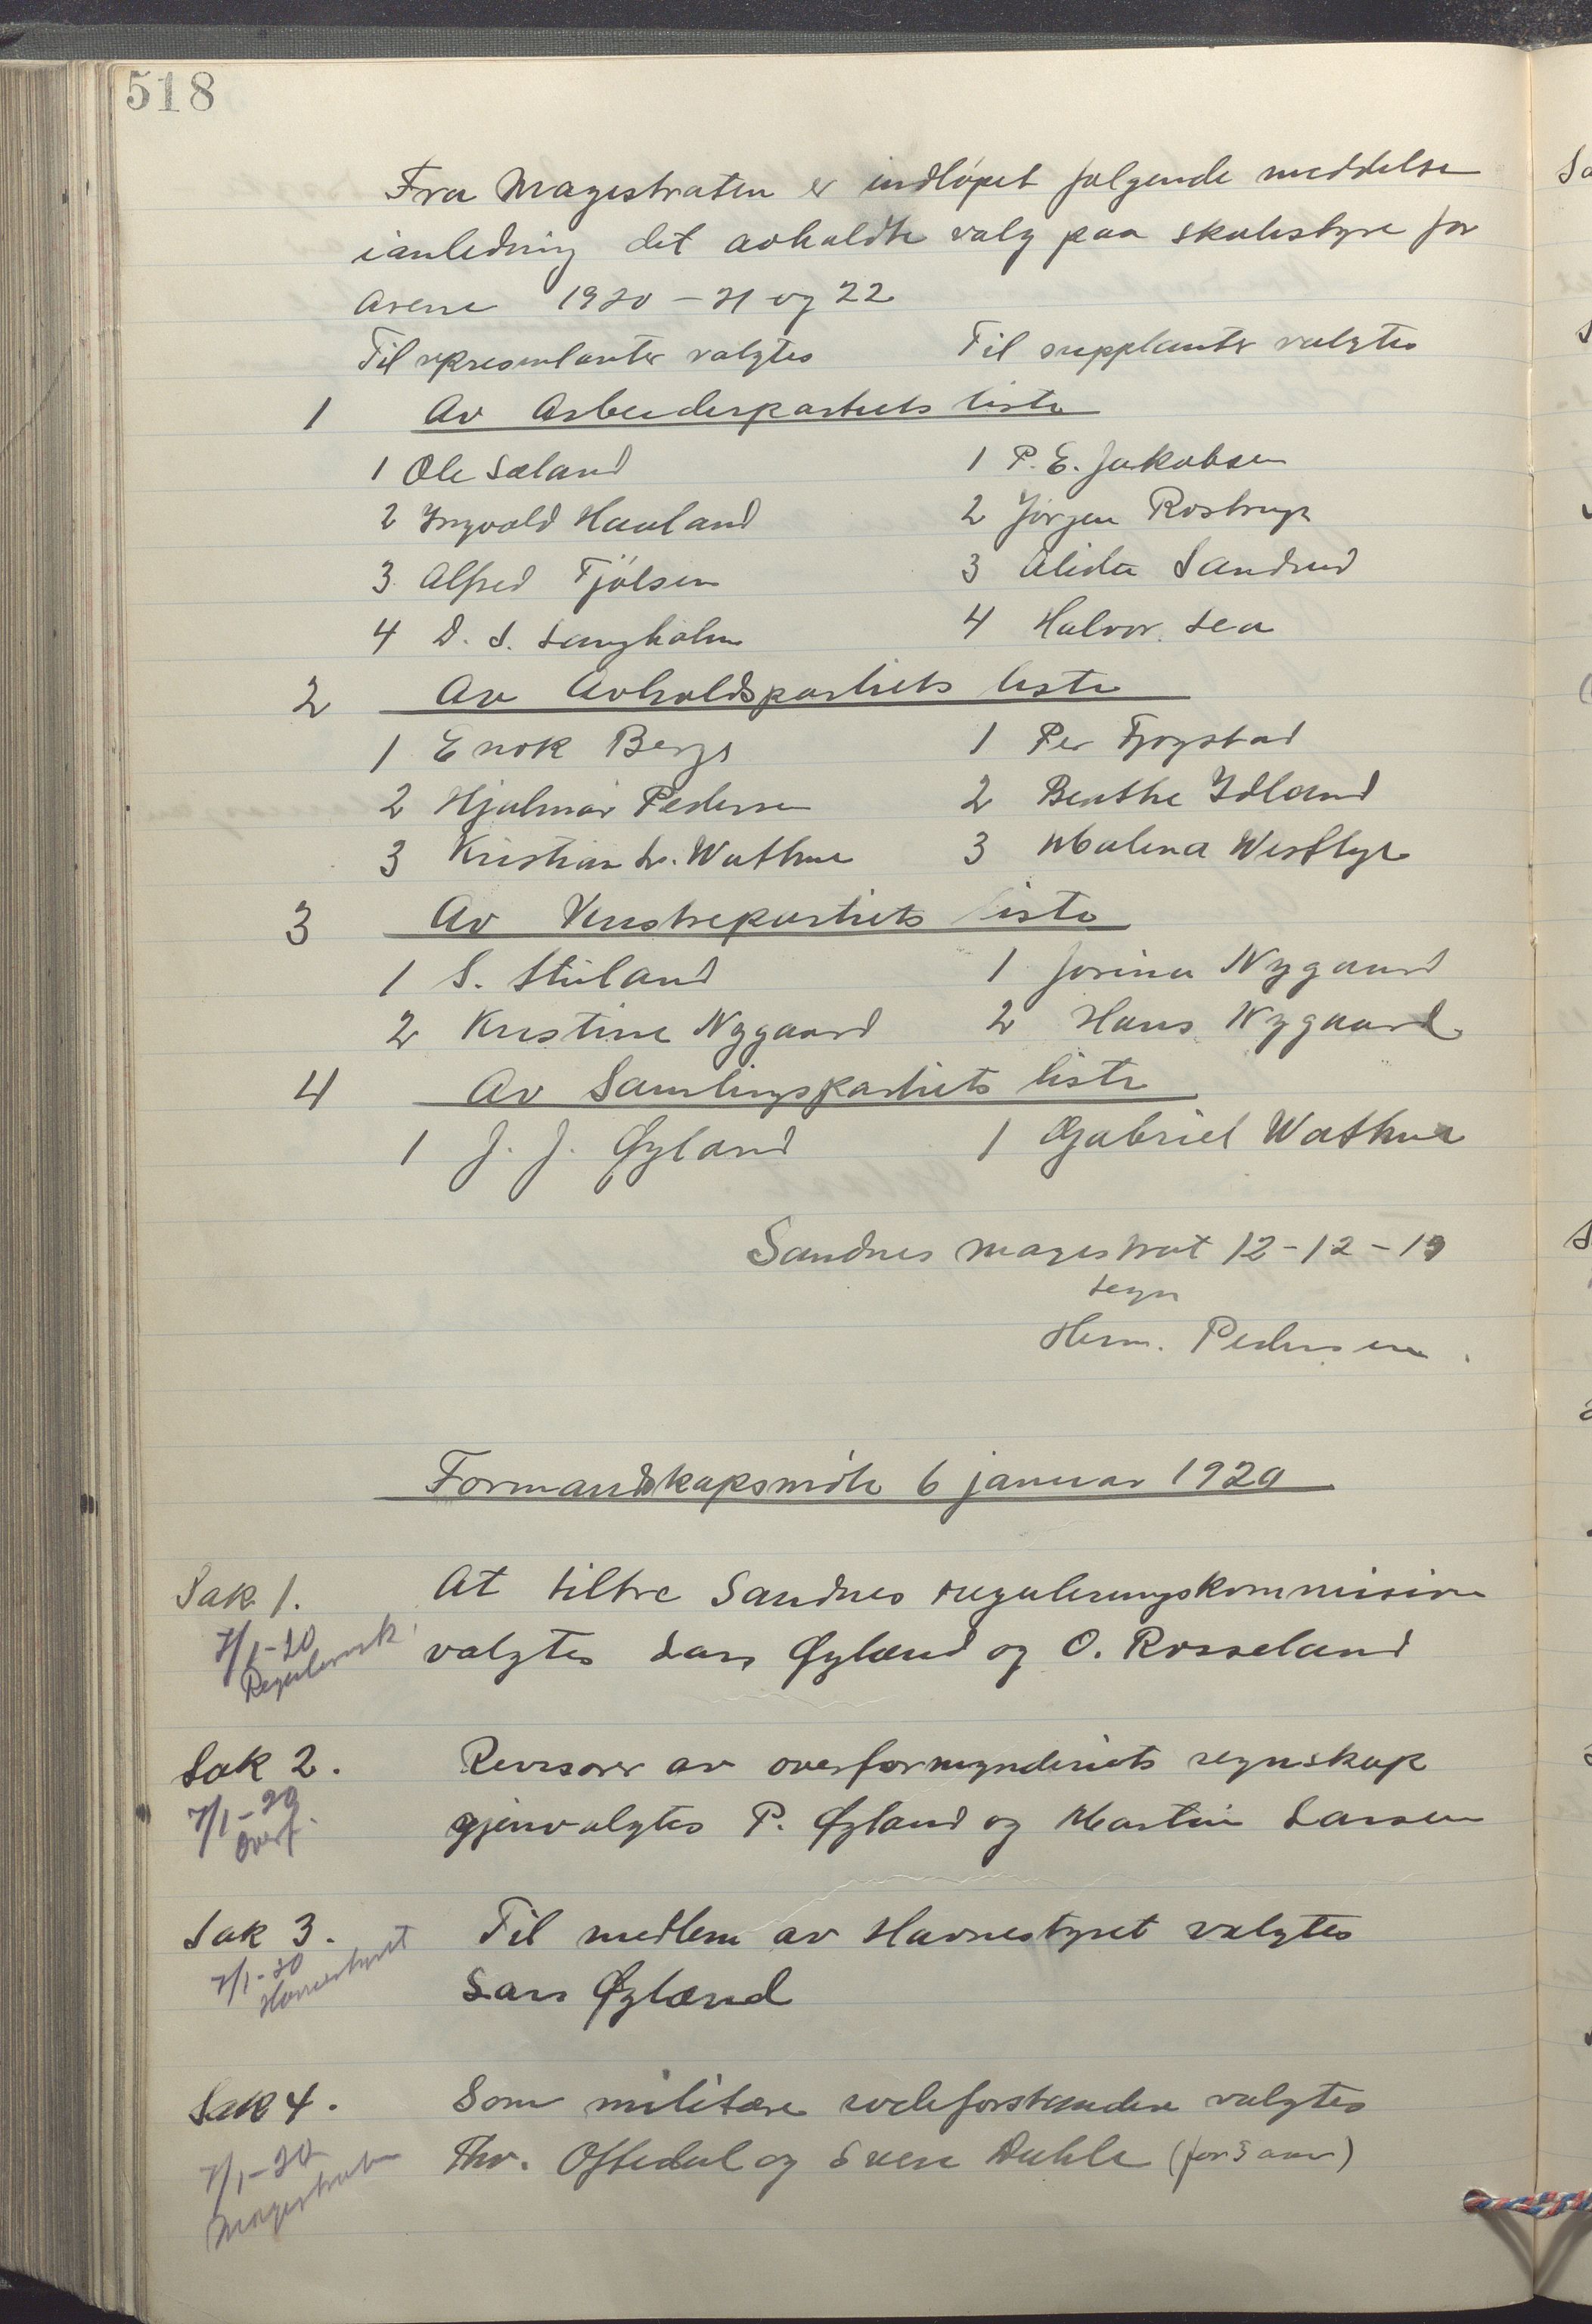 518
Fra Magistraten er indløpet følgende meddelse
i anledning det avholdte valg paa skolestyre for
arene 1920 – 21 og 22
Til representanter valgtes Til supplanter valgtes
1 Av Arbeiderpartiets liste
1 Ole Sæland 1 P. E. Jakobsen
2 Ingvald Hauland 2 Jørgen Rostrup
3 Alfred Fjølsen 3 Alida Sandrud
4 D. S. Langholm 4 Halvor Lea
2 Av Avholdspartiets liste
1 Enok Berge 1 Per Fjogstad
2 Hjalmar Pedersen 2 Benthe Idland
3 Kristian L. Wathne 3 Malena Westlye
3 Av Venstrepartiets liste
1 S. Stuland 1 Jorina Nygaard
2 Kristine Nygaard 2 Hans Nygaard
4 Av Samlingspartiets liste
1 J. J. Øgland 1 Gabriel Wathne
Sandnes magistrat 12-12-19
segn
Herm. Pedersen.
Formandskapsmøte 6 januar 1920
Sak 1. At tiltre Sandnes reguleringskommision
7/1-20 valgtes Lars Øglænd og O. Rosseland
Regulerinsk.
Sak 2. Revisorer av overformynderiets regnskap
7/1-20 gjenvalgtes P. Øgland og Martin Larsen
Overf.
Sak 3. Til medlem av Havnestyret valgtes
7/1-20 Lars Øglænd
Havnestyret
Sak 4. Som militære rodeforstandere valgtes
7/1-20 Thv. Oftedal og Svein Dahle (for 3 aar)
Magistraten